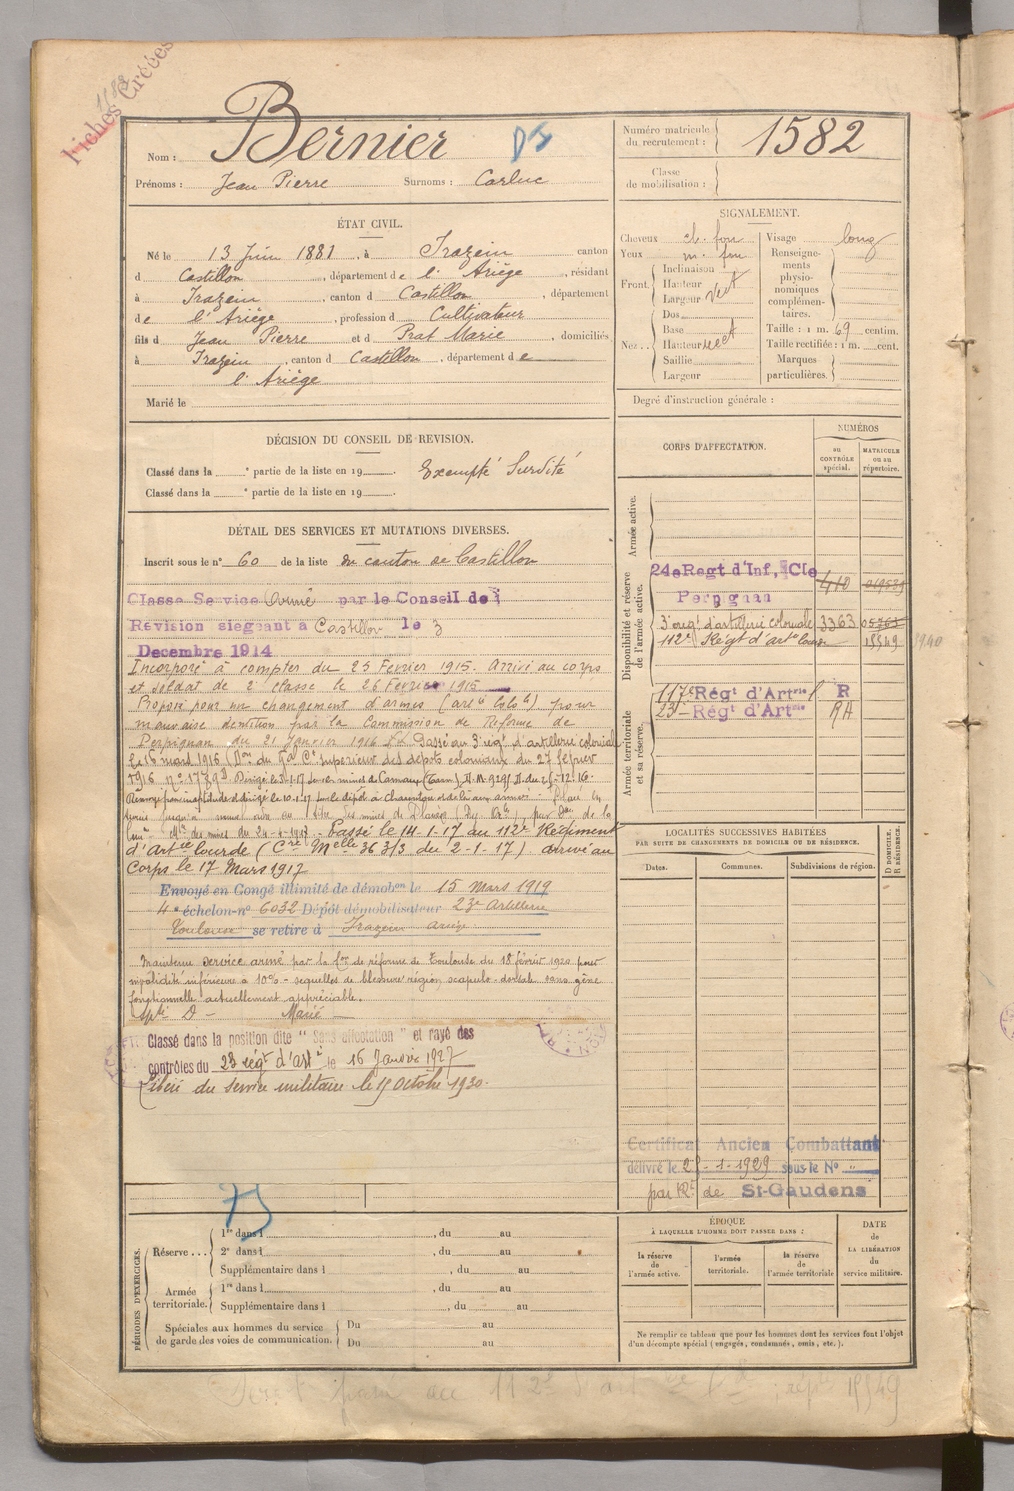 Fiches Créées
Bernier
Nom :
Prénoms : Jean Pierre Surnoms : Carluc
Numéro matricule du recrutement : 1582
Classe de mobilisation :
ÉTAT CIVIL.
Né le 13 Juin 1881, à Irazein canton
d Castillon, département de l'Ariège, résidant
à Irazein, canton d Castillon, département
de l'Ariège, profession d Cultivateur
fils d Jean Pierre et d Prat Marie domiciliés
à Irazein, canton d Castillon, département de
l'Ariège
Marié le
SIGNALEMENT.
Cheveux ch. fon
Yeux m. fon
Front. Inclinaison
Hauteur
Largeur vert
Nez. Dos
Base
Hauteur rect
Saillie
Largeur
Visage long
Renseignements physionomiques complémentaires.
Taille : 1 m. 69 centim.
Taille rectifiée : 1 m. cent.
Marques particulières.
Degré d'instruction générale :
DÉCISION DU CONSEIL DE REVISION.
Classé dans la e partie de la liste en 19 . Exempté Surdité
Classé dans la e partie de la liste en 19 .
DÉTAIL DES SERVICES ET MUTATIONS DIVERSES.
Inscrit sous le n° 60 de la liste du canton de Castillon
Classe Service Armé par le Conseil de
Révision siegeant à Castillon le 3
Decembre 1914
Incorporé à compter du 25 Fevrier 1915. Arrivé au corps
et soldat de 2e classe le 26 Fevrier 1915
Proposé pour un changement d'armes (artie Colole) pour
mauvaise dentition par la Commission de Réforme de
Perpignan du 21 Janvier 1916 Passé au 3e régt d'artillerie coloniale
le 16 mars 1916 (Don du Gal Ct Supérieur des dépots coloniaux du 27 février
1916 n° 1779 D. Dirigé le 3-1-17 sur les mines de Carmaux (Tarn) D.M. 9291 D. du 25-12-16.
Renvoyé pour inaptitude et dirigé le 10-1-17 sur le dépôt
Passé le 14-1-17 au 112e Régiment
d'Artie lourde (Cre Melle 363/3 du 2-1-17) arrivé au
Corps le 17 Mars 1917
Envoyé en Congé illimité de démobon le 15 mars 1919
4e échelon-n° 6032 Dépôt démobilisateur 23e Artillerie
Toulouse se retire à Irazein Ariège
Maintenu service armé par la Con de réforme de Toulouse du 18 février 1920 pour
invalidité inférieure à 10% - sequelles de blessure région scapulo-dorsale sans gêne
fonctionnelle actuellement appréciable.
Apté D - Marié
Classé dans la position dite "Sans affectation" et rayé des
contrôles du 23 régt d'art le 16 Janvier 1927
Libéré du service militaire le 15 Octobre 1930.
CORPS D'AFFECTATION.
NUMÉROS
au CONTRÔLE spécial.
MATRICULE ou au répertoire.
Armée active.
Disponibilité et réserve de l'armée active.
24e Regt d'Inf, Cie 410
Perpignan
3e régt d'artillerie coloniale 3363
112e Régt d'artie lourde 15549
Armée territoriale et sa réserve.
117e Régt d'Artrie R
23e Régt d'Artrie RA
LOCALITÉS SUCCESSIVES HABITÉES
PAR SUITE DE CHANGEMENTS DE DOMICILE OU DE RÉSIDENCE.
Dates. Communes. Subdivisions de région. D DOMICILE. R RÉSIDENCE.
Certificat Ancien Combattant
délivré le -1-1929 sous le N° "
par Rt de St-Gaudens
PÉRIODES D'EXERCICES.
Réserve... 1re dans l , du au
2e dans l , du au
Supplémentaire dans l , du au
Armée territoriale. 1re dans l , du au
Supplémentaire dans l , du au
Spéciales aux hommes du service de garde des voies de communication. Du au
Du au
ÉPOQUE
À LAQUELLE L'HOMME DOIT PASSER DANS :
la réserve de l'armée active.
l'armée territoriale.
la réserve de l'armée territoriale
DATE DE LA LIBÉRATION du service militaire.
Ne remplir ce tableau que pour les hommes dont les services font l'objet
d'un décompte spécial (engagés, condamnés, omis, etc.).